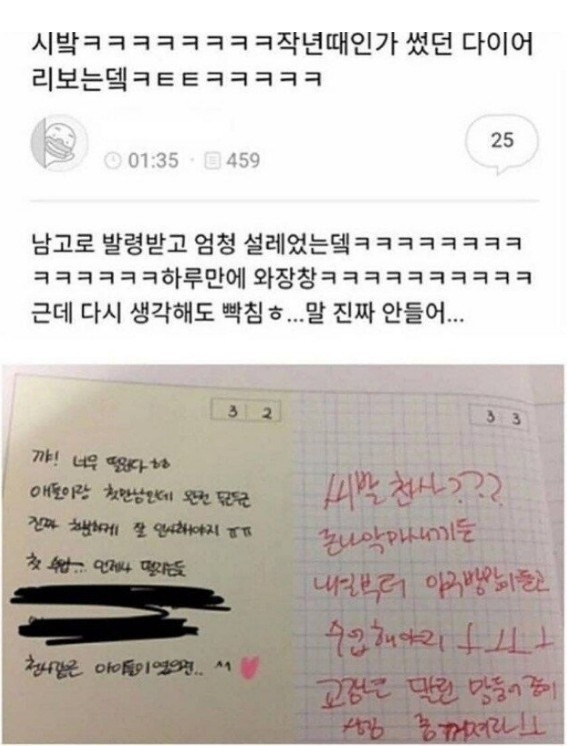 시박ㅋㅋㅋㅋㅋㅋㅋㅋ작년때인가 썼던 다이어
리보는뎈ㅋㅌㅌㅋㅋㅋㅋㅋ
01:35 · 459
25
남고로 발령받고 엄청 설레었는뎈ㅋㅋㅋㅋㅋㅋㅋ
ㅋㅋㅋㅋㅋㅋ하루만에 와장창ㅋㅋㅋㅋㅋㅋㅋㅋㅋㅋ
근데 다시 생각해도 빡침ㅎ...말 진짜 안들어...
3 2
꺄! 너무 떨린다 ㅎㅎ
애들이랑 첫만남인데 완전 두근두근
진짜 차분하게 잘 인사해야지 ㅠㅠ
첫 수업... 언제나 떨리는듯
천사같은 아이들이였으면.. ^^
3 3
씨발 천사???
존나 악마새끼들
내일부터 야구방망이들고
수업해야리
교장은 말린 망둥어 중이